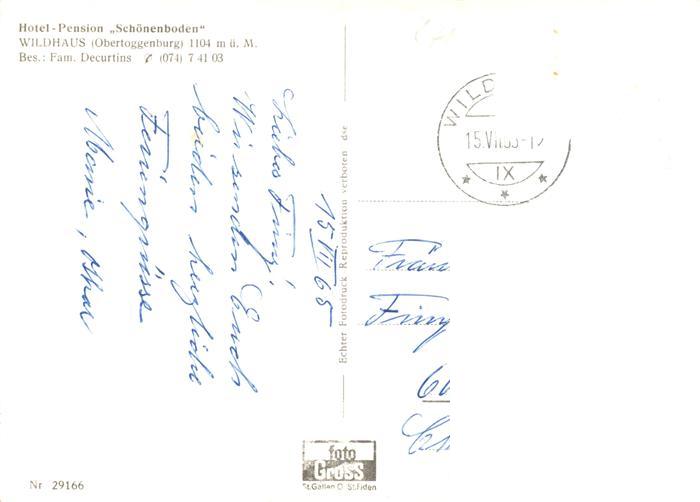 Hotel-Pension „Schönenboden“
WILDHAUS (Obertoggenburg) 1104 m ü. M.
Bes.: Fam. Decurtins ✆ (074) 7 41 03
15. VII 65
Liebes Fini,
Wir senden Euch
beiden herzliche
Feriengrüsse
Marie, Othmar
Echter Fotodruck Reproduktion verboten - dse
WILD
15.VII.65-1
IX
Fräu
foto
Gross
St.Gallen O St.Fiden
Nr 29166